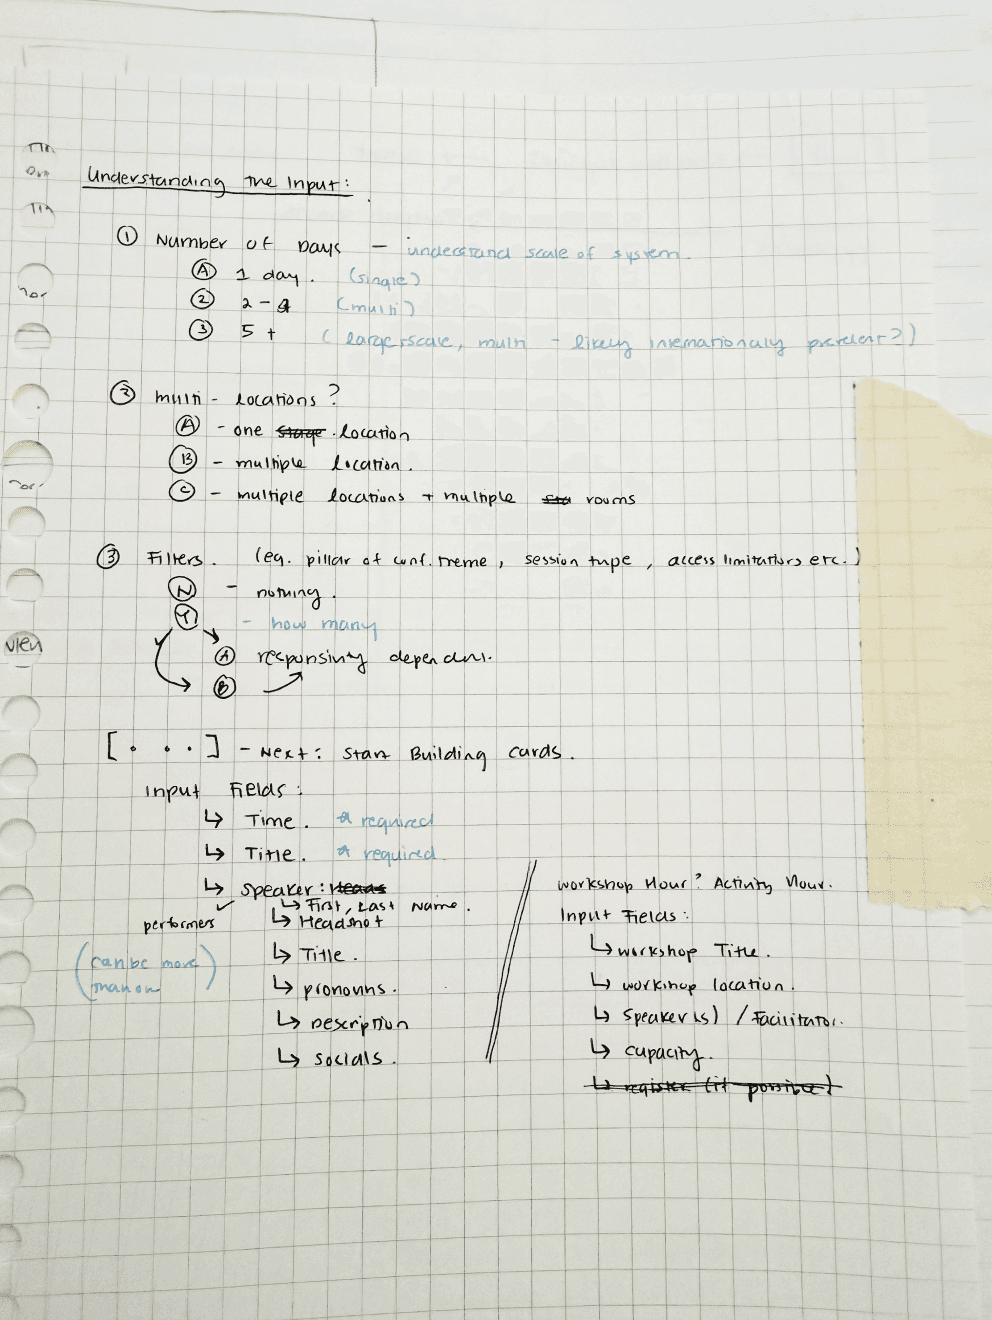 Understanding the Input:
① Number of Days — understand scale of system.
Ⓐ 1 day. (single)
② 2 - 4 (multi)
③ 5 + (large scale, multi - likely internationally prevelent?)
② multi - locations?
Ⓐ - one stage location
Ⓑ - multiple location.
Ⓒ - multiple locations + multiple rooms
③ Filters. (eg. pillar of conf. theme, session type, access limitations etc.)
Ⓝ - nothing.
Ⓨ - how many
Ⓐ responsivity dependent.
Ⓑ
[. . .] - Next: Start Building cards.
Input Fields:
↳ Time. * required
↳ Title. * required.
↳ Speaker:
↳ First, Last Name.
performers
↳ Headshot
(can be more than one)
↳ Title.
↳ pronouns.
↳ Description
↳ socials.
Workshop Hour? Activity Hour.
Input Fields:
↳ workshop Title.
↳ workshop location.
↳ Speaker(s) / Facilitator.
↳ capacity.
↳ register (if possible)
view